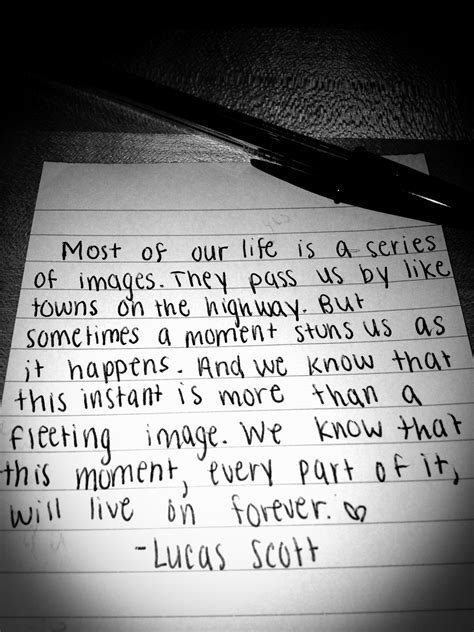 Most of our life is a series
of images. They pass us by like
towns on the highway. But
sometimes a moment stuns us as
it happens. And we know that
this instant is more than a
fleeting image. We know that
this moment, every part of it,
will live on forever. ♡
-Lucas Scott